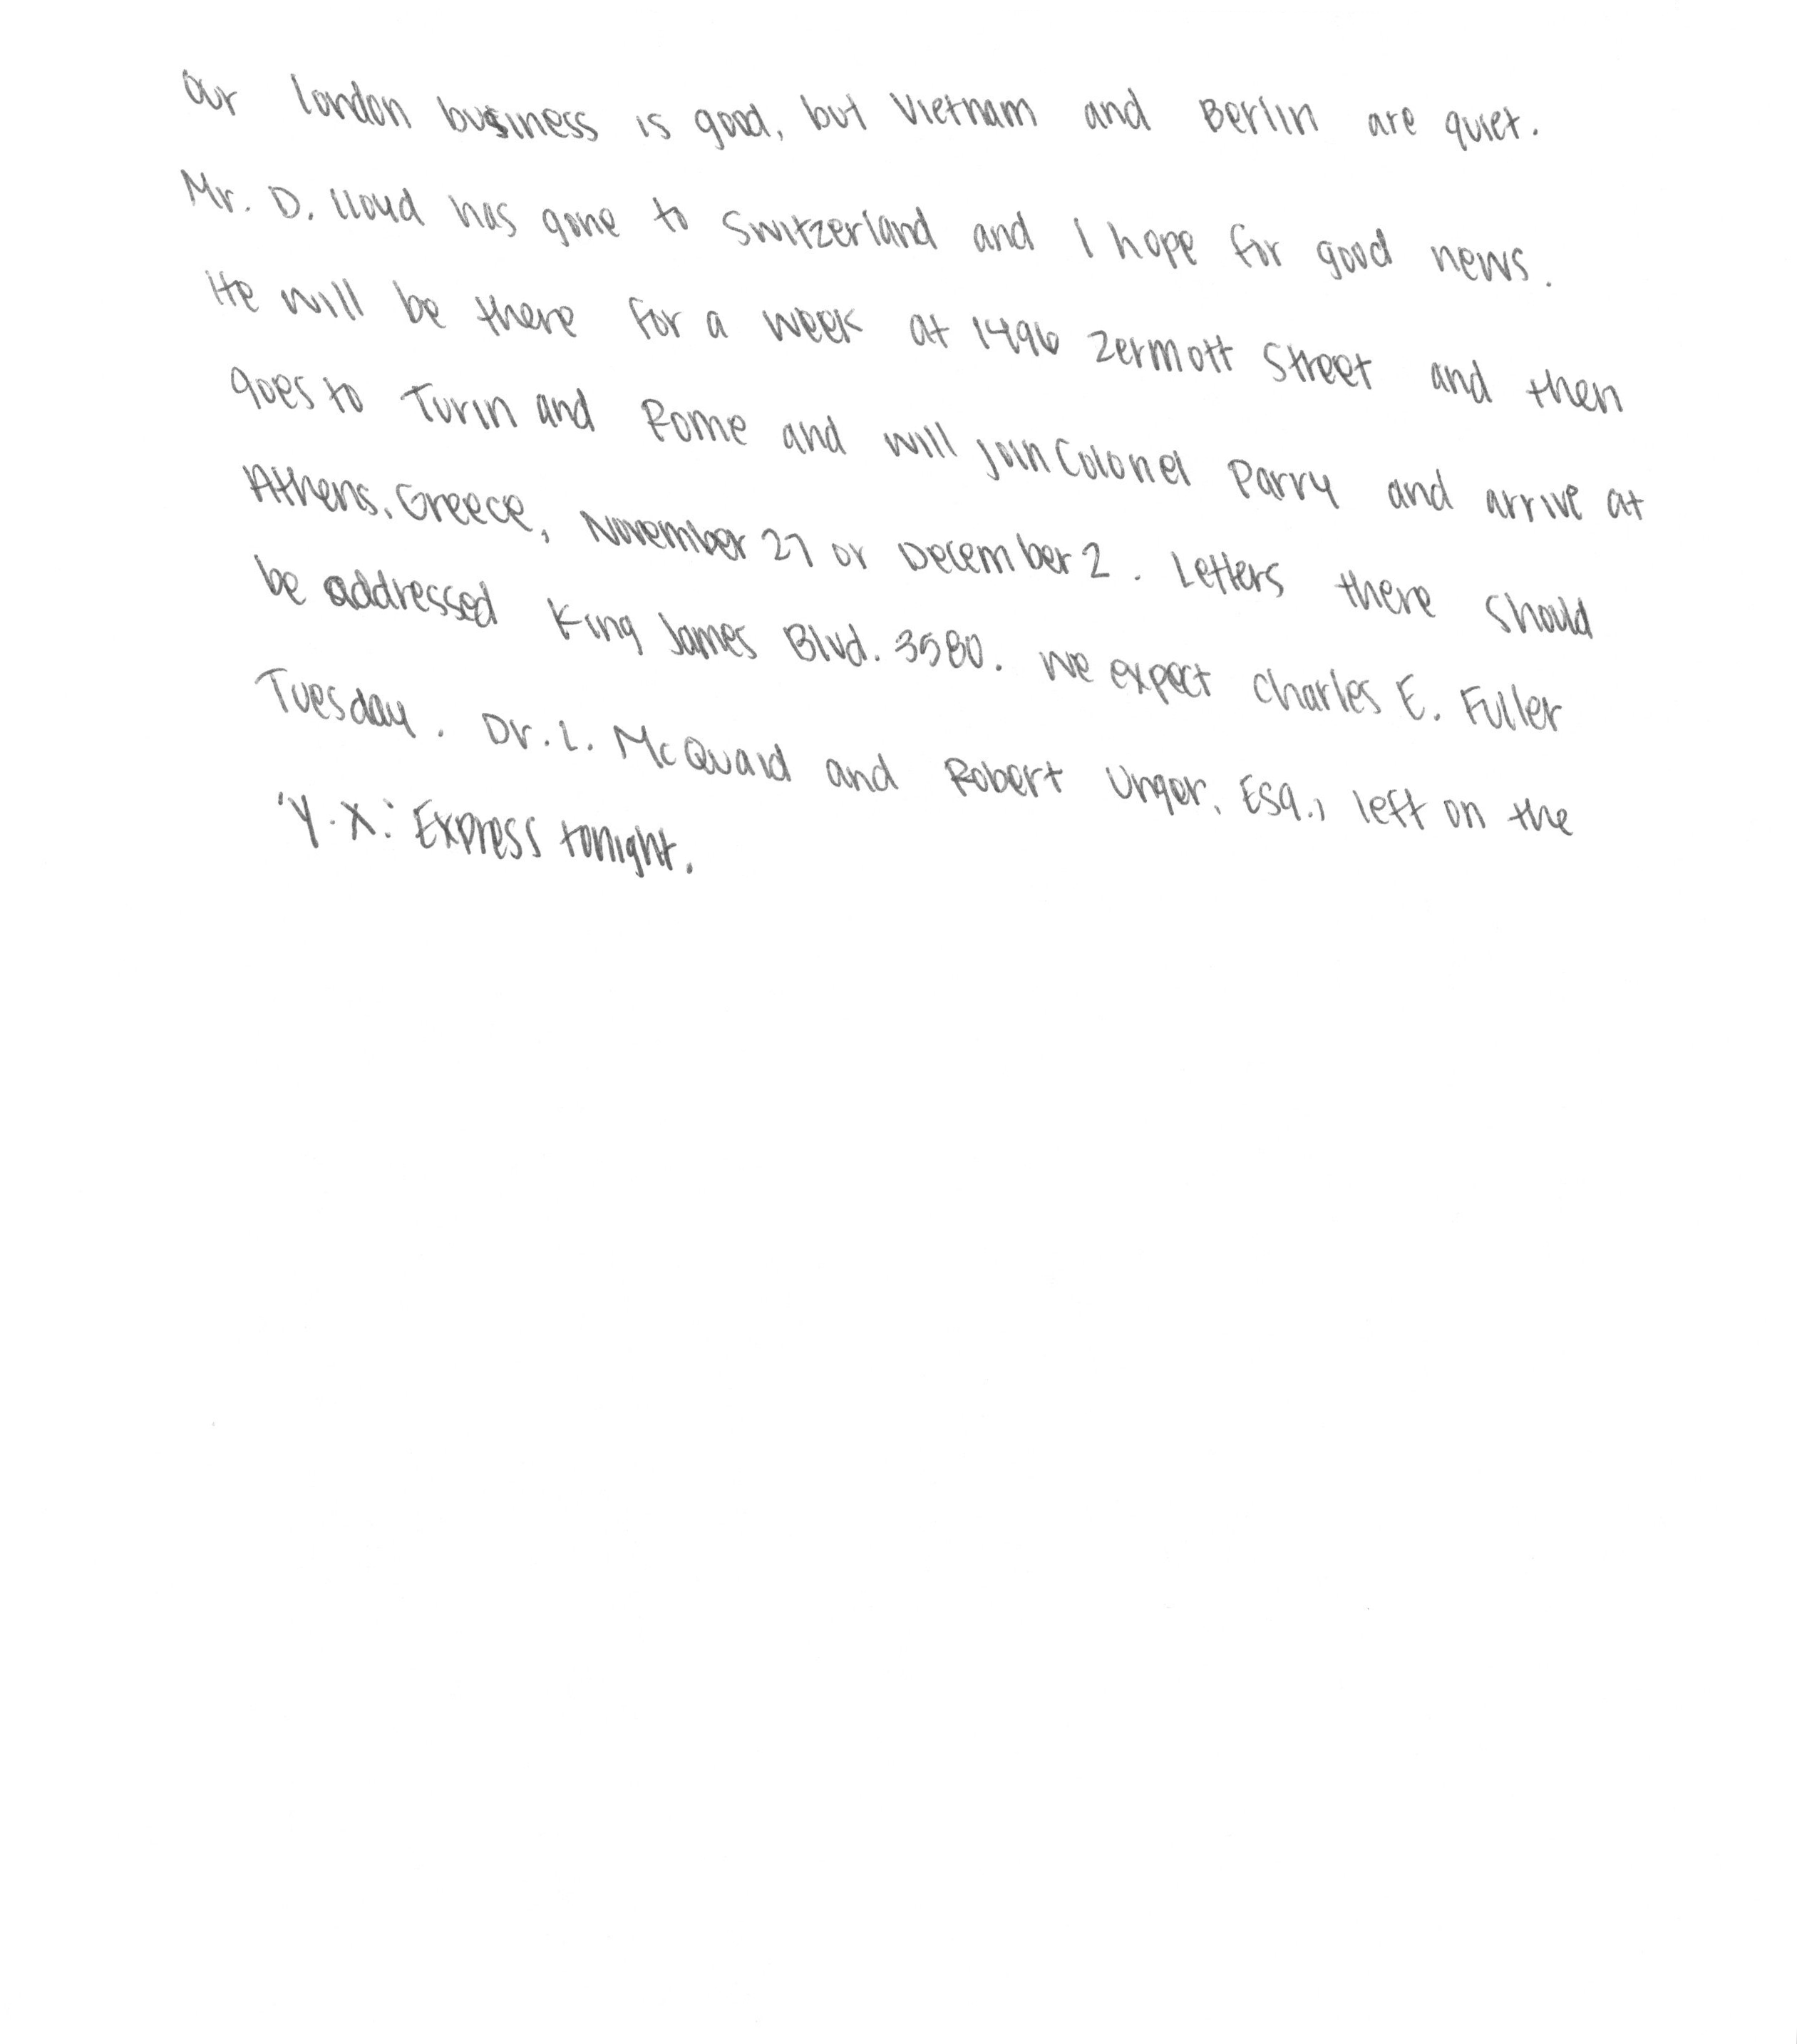 Our london business is good, but Vietnam and Berlin are quiet.
Mr. D. Lloyd has gone to Switzerland and I hope for good news.
He will be there for a week at 1496 Zermott Street and then
goes to Turin and Rome and will join Colonel Parry and arrive at
Athens, Greece, November 27 or December 2. Letters there should
be addressed King James Blvd. 3580. We expect Charles E. Fuller
Tuesday. Dr. L. McQuaid and Robert Unger, Esq., left on the
'Y.X.' Express tonight.